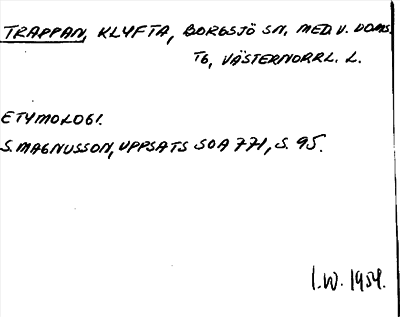 TRAPPAN, KLYFTA, BORGSJÖ SN. MED. V. DOMS.
TG, VÄSTERNORRL. L.
ETYMOLOGI.
S. MAGNUSSON, UPPSATS SOA 771, S. 95.
I.W. 1954.